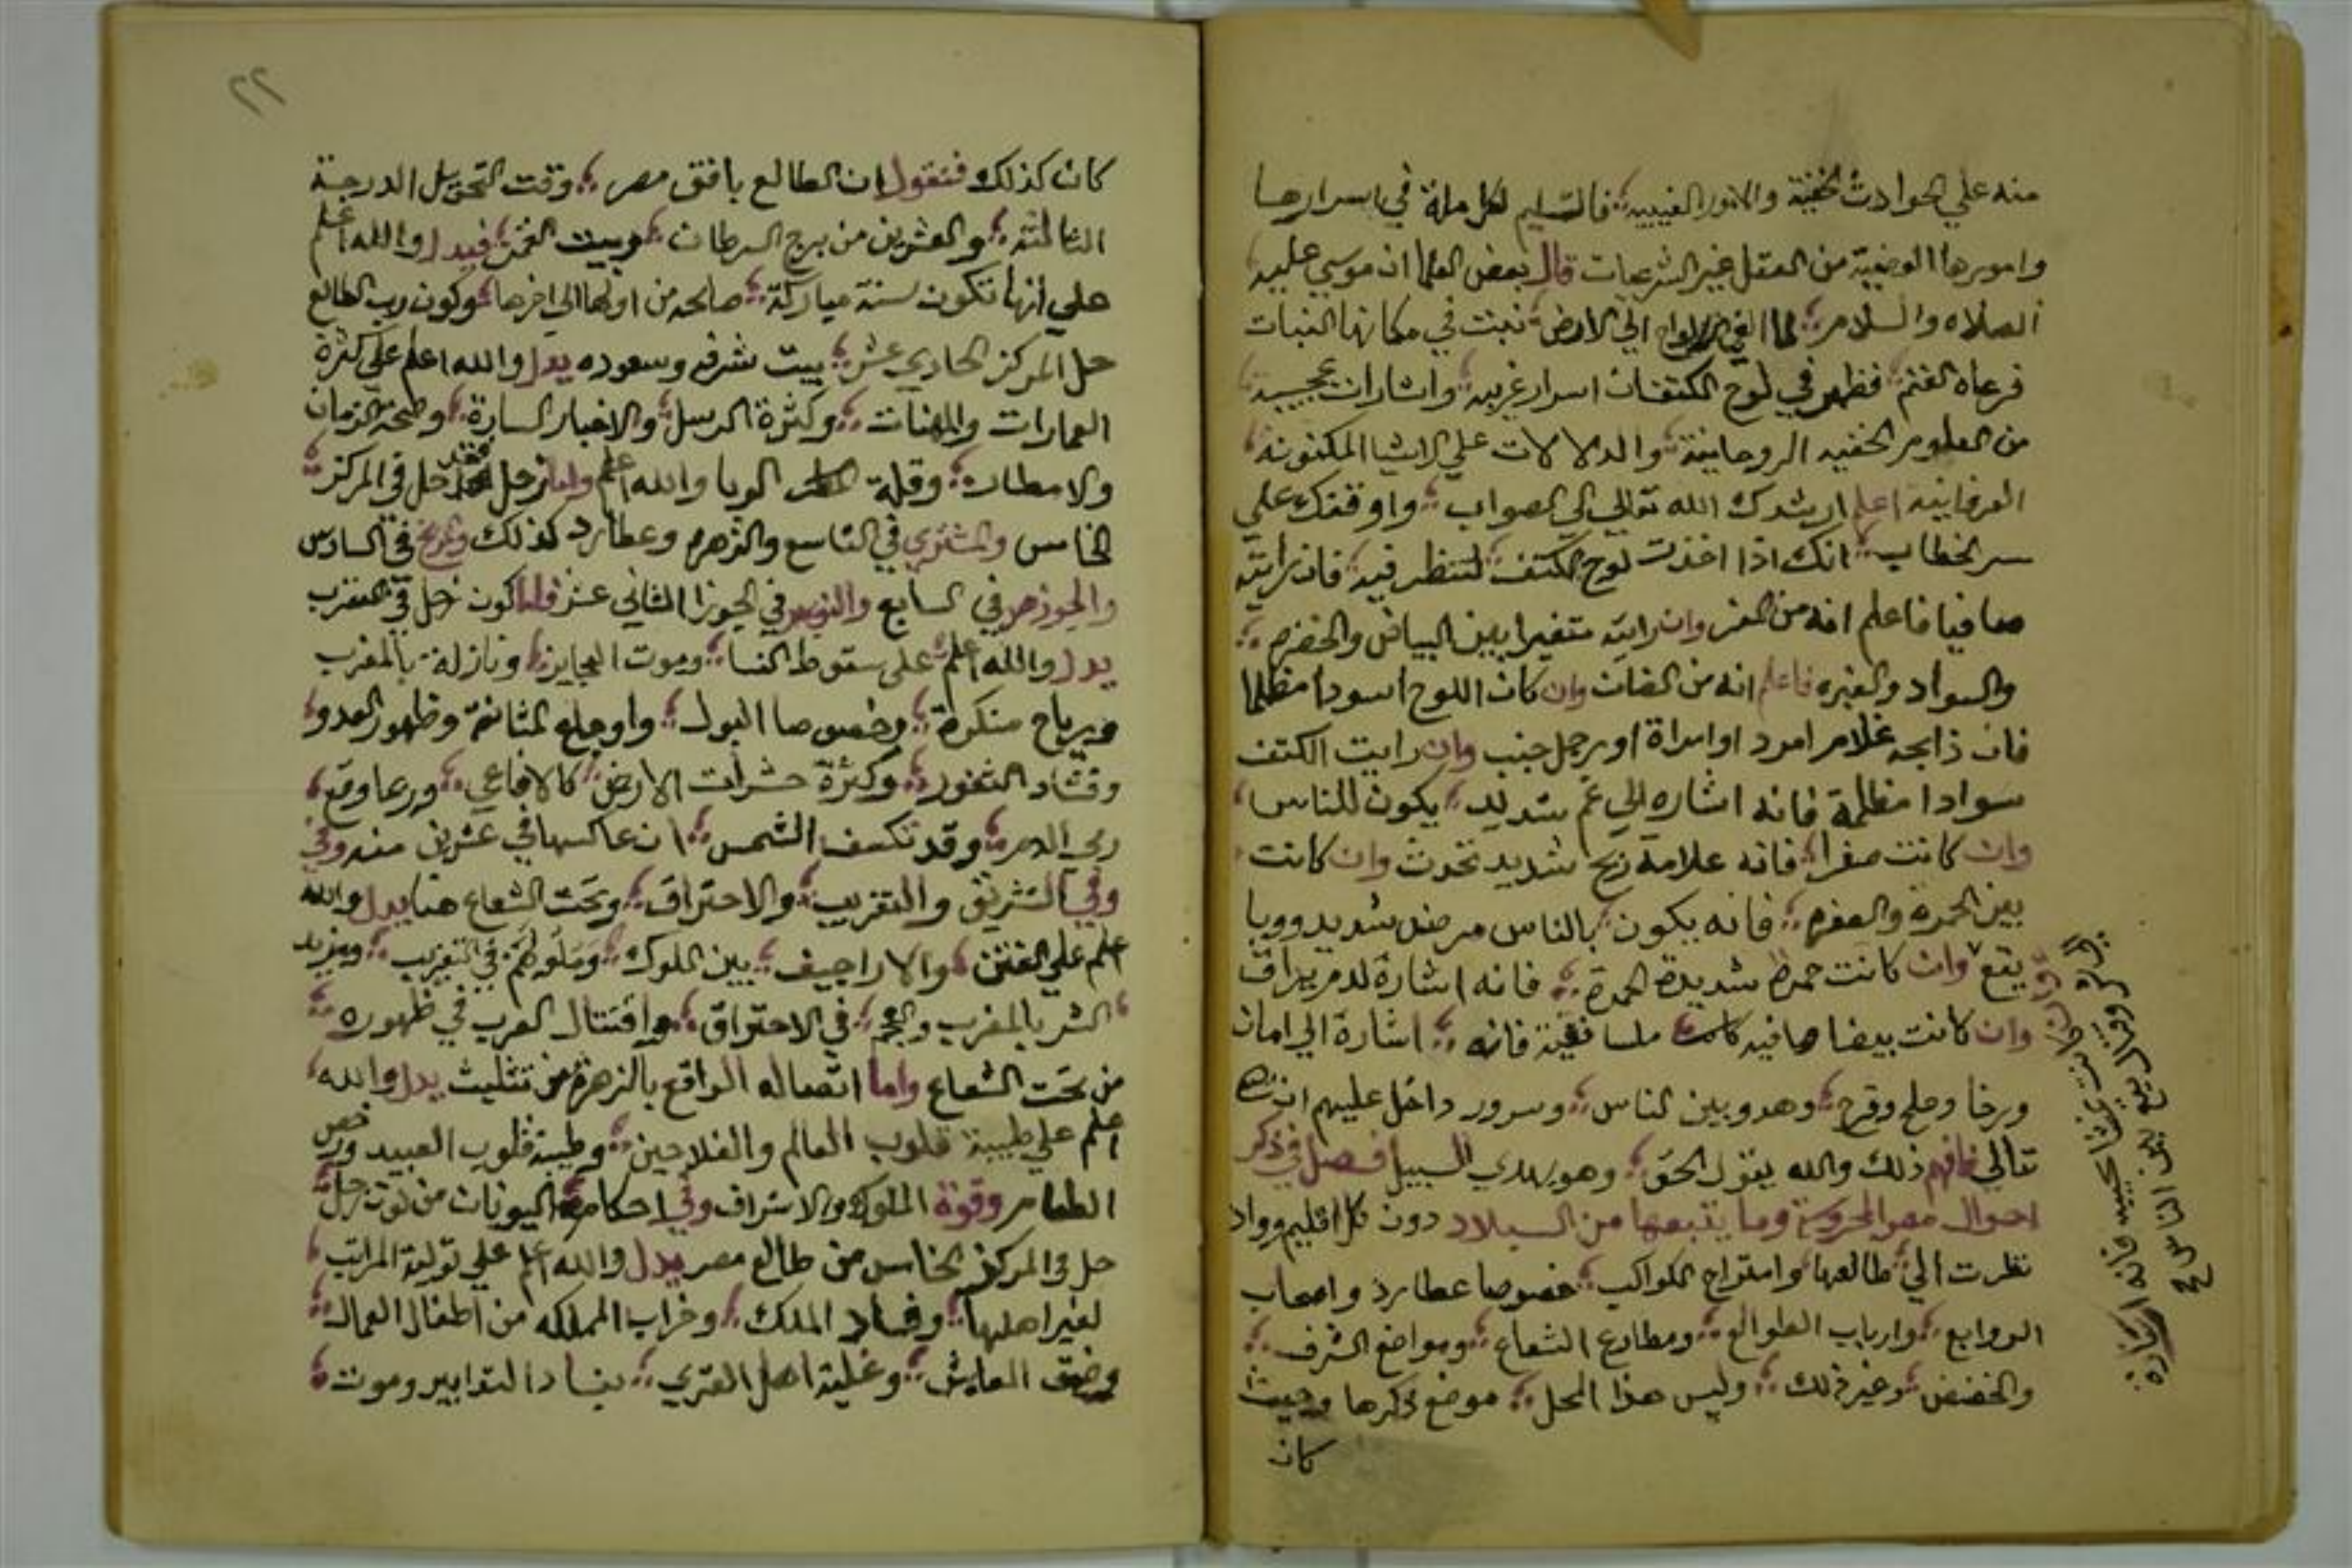 منه علي الحوادث الخفية والامور الغيبيه فالتسليم لكل ملة في اسرارها
وامورها الوضعية من العقل غير الشرعيات قال بعض العلما ان موسي عليه
الصلاه والسلام لما القي الالواح الي الارض نبتت في مكانها النبات
فرعاه الغنم فظهر في لوح الكتفات اسرار غريبه واشارات عجيبة
من العلوم الخفيه الروحانية والدلالات علي الاشيا المكنونه
العرفانية اعلم ارشدك الله تعالي الي الصواب واوقفك علي
سر الخطاب انك اذا اخذت لوح الكتف لتنظر فيه فان رايته
صافيا فاعلم انه من المعز وان رايته متغيرا بين البياض والخضره
والسواد والغبره فاعلم انه من الضان وان كان اللوح اسودا مظلما
فان ذابحه غلام امرد او امراة او رجل جنب وان رايت الكتف
سوادا مظلمة فانه اشاره الي غم شديد يكون للناس
وان كانت صفرا فانه علامة ريح شديد تحدث وان كانت
بين الحمرة والصفره فانه يكون بالناس مرض شديد ووبا
يقع وان كانت حمرة شديدة الحمرة فانه اشارة لدم يراق
وان كانت بيضا صافيه كانت ملسا نقية فانه اشارة الي امان
ورخا وصلح وفرح وهدو بين الناس وسرور داخل عليهم ان شا الله
تعالي فافهم ذلك والله يقول الحق وهو يهدي السبيل فصل في ذكر
احوال مصر المحروسة وما يتبعها من البلاد دون كل اقليم وواد
نظرت الي طالعها وامتزاج الكواكب خصوصا عطارد واصحاب
الروابع وارباب الطوالع ومطارح الشعاع ومواضع الشرف
والخفض وغير ذلك وليس هذا المحل موضع ذكرها وحيث
كان
وان كانت غشا فانه اشارة
يقع بين الناس
٢٢
كان كذلك فنقول ان الطالع بافق مصر وقت التحويل الدرجة
الثالثة والعشرين من برج السرطان وبيت القمر فيدل والله اعلم
علي انها تكون سنة مباركة صالحه من اولها الي اخرها وكون رب الطالع
حل المركز الحادي عشر بيت شرفه وسعوده يدل والله اعلم علي كثرة
العمارات والمهنات وكثرة الرسل والاخبار السارة وصحة الزمان
والامطار وقلة الوبا والله اعلم واما زحل فقد حل في المركز
الخامس والمشتري في التاسع والزهره وعطارد كذلك والمريخ في السادس
والجوزهر في السابع والنوبهر في الجوزا الثاني عشر فلما كون زحل في العقرب
يدل والله اعلم علي سقوط النسا وموت العجايز ونازلة بالمغرب
ورياح منكرة وخصوصا البول واوجاع المثانة وظهور العدو
وفساد الثغور وكثرة حشرات الارض كالافاعي وربما وقع
رمي الدم وقد تكسف الشمس ان عاكسها في عشرين منه وفي
وفي التشريق والتغريب والاحتراق وتحت الشعاع هنا يدل والله
اعلم علي الفتن والاراجيف بين الملوك في التغريب ومزيد
الشر بالمغرب والعجم في الاحتراق واقتتال العرب في ظهوره
من تحت الشعاع واما اتصاله الواقع بالزهرة من تثليث يدل والله
اعلم علي طيبة قلوب العالم والفلاحين وطيبة قلوب العبيد ورخص
الطعام وقوة الملوك والاشراف وفي احكام اليونان من كون زحل
حل في المركز الخامس من طالع مصر يدل والله اعلم علي تولية المراتب
لغير اهلها وفساد الملك وخراب المملكه من اطفال العمال
وضيق المعايش وغلبة اهل القري بفساد التدابير وموت